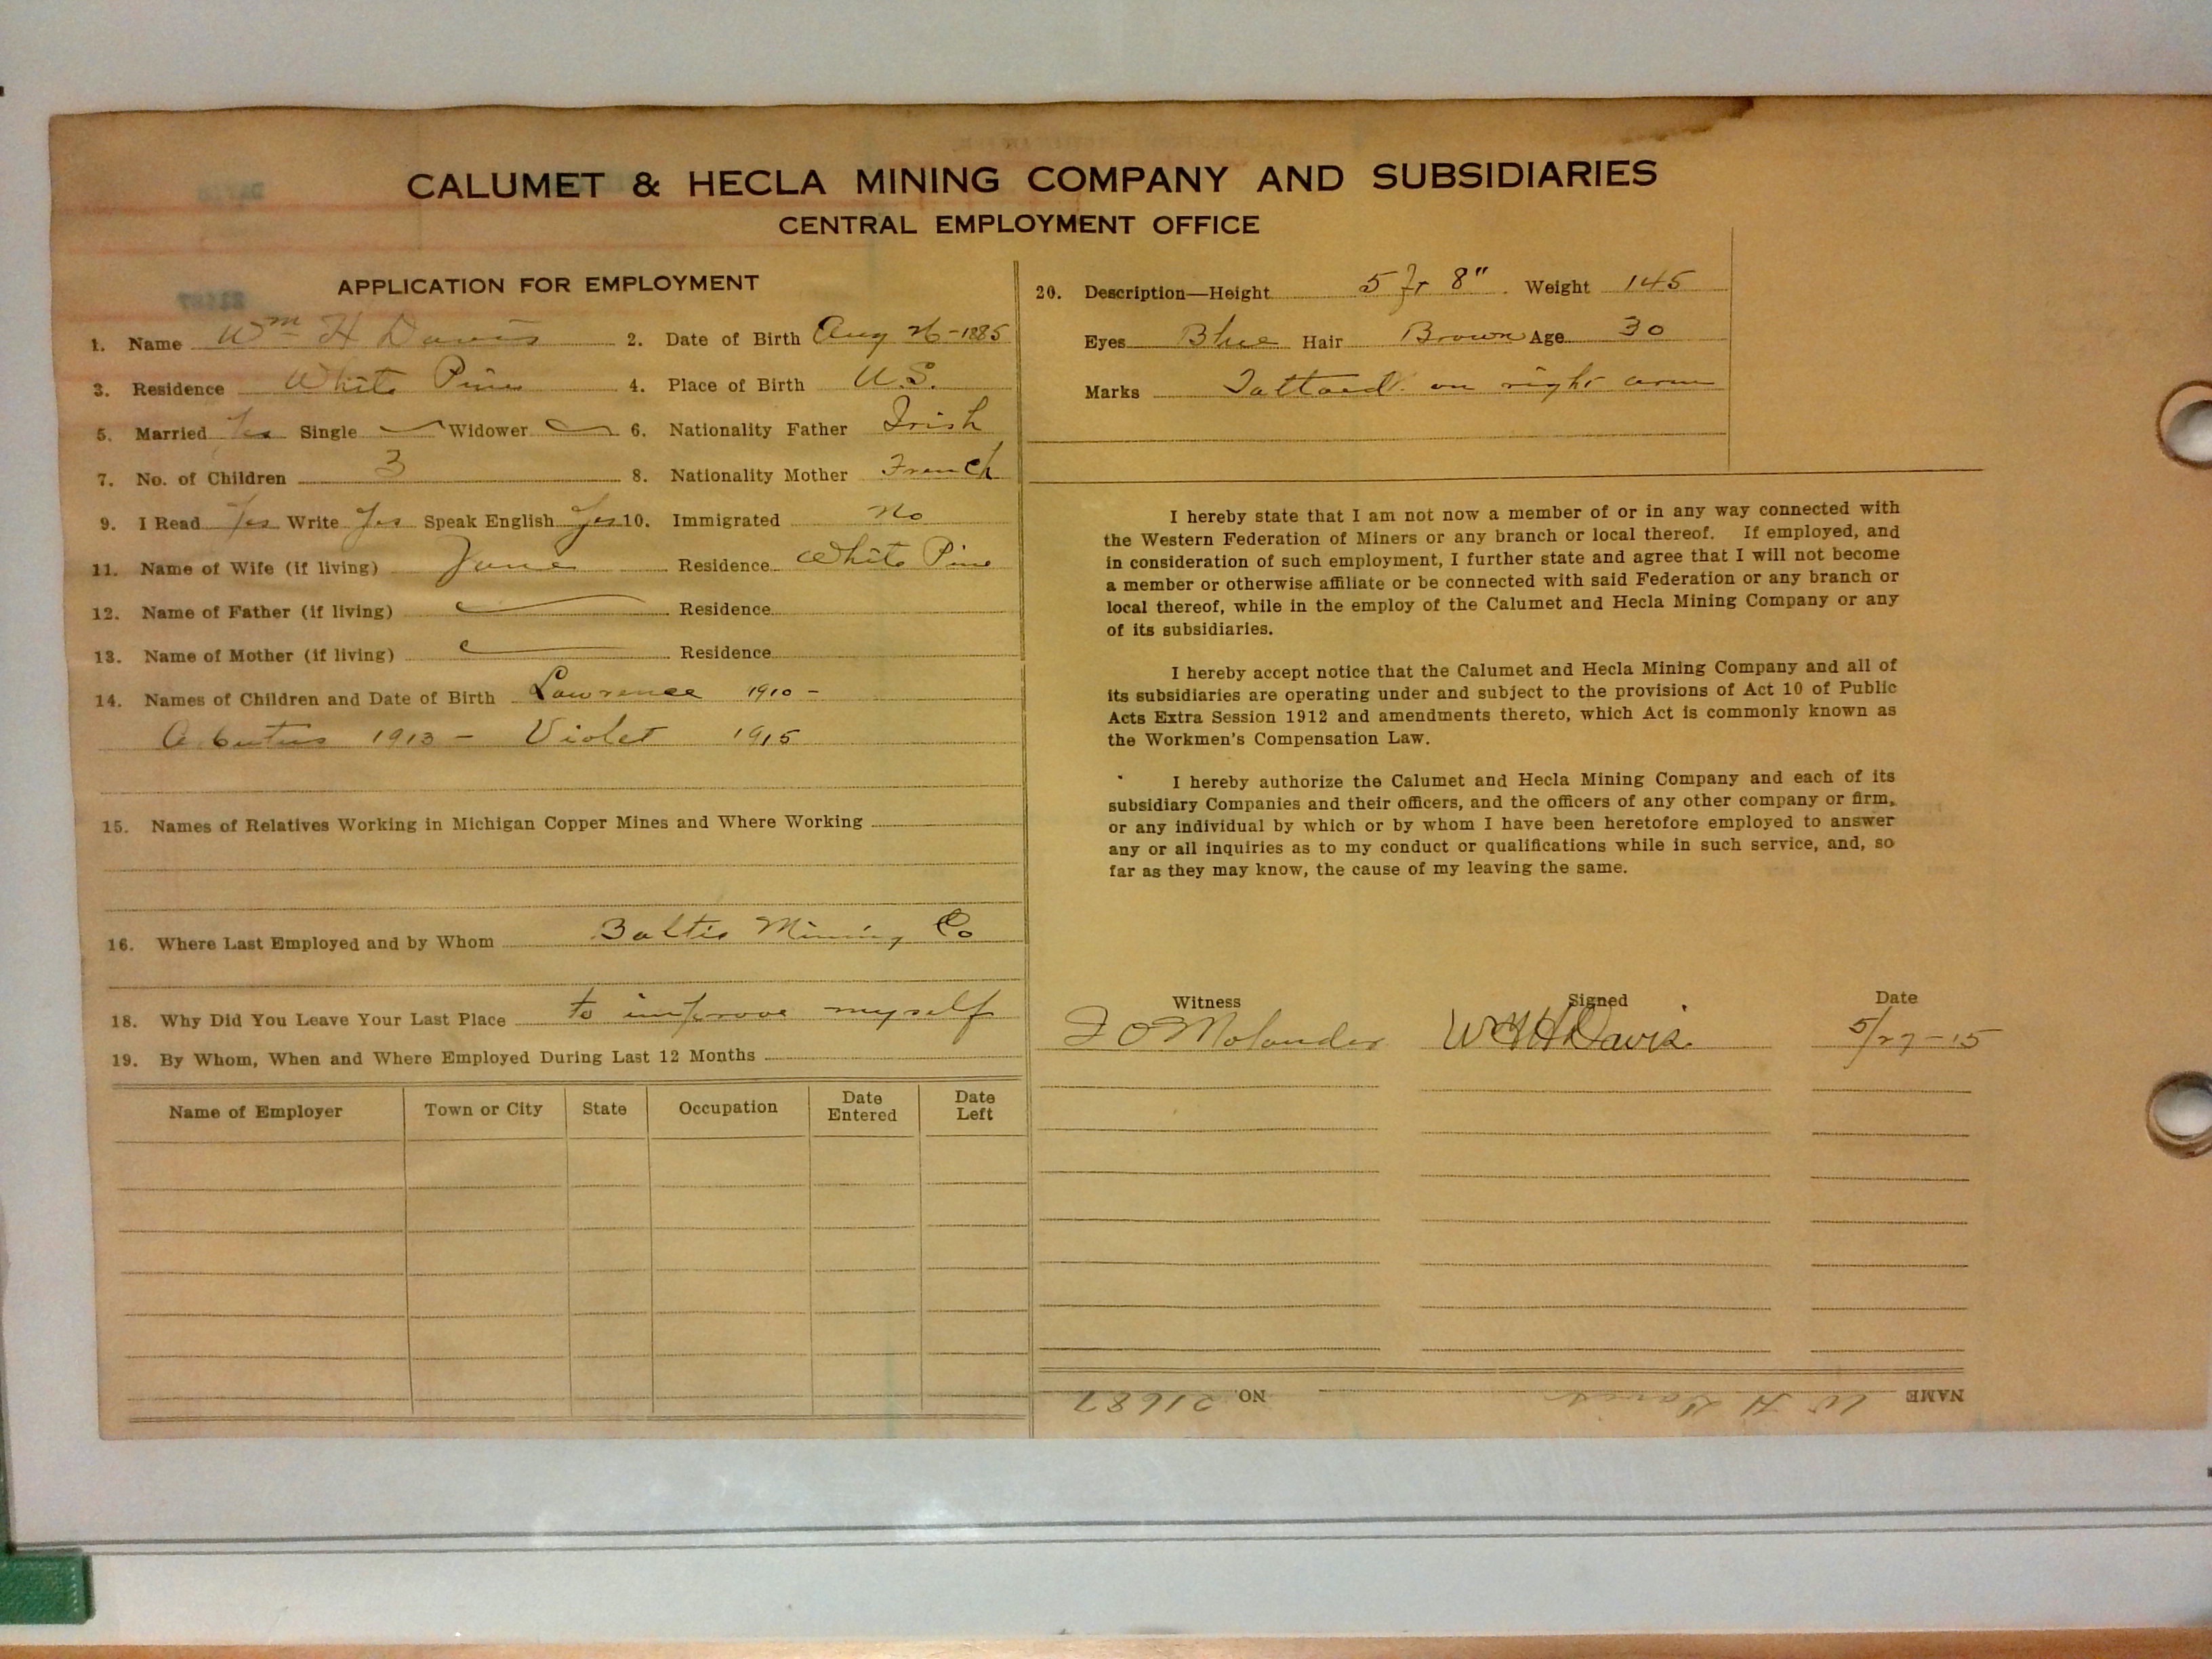 CALUMET & HECLA MINING COMPANY AND SUBSIDIARIES
CENTRAL EMPLOYMENT OFFICE
APPLICATION FOR EMPLOYMENT
1. Name Wm H Davis 2. Date of Birth Aug 26-1885
3. Residence White Pine 4. Place of Birth U.S.
5. Married Yes Single Widower 6. Nationality Father Irish
7. No. of Children 3 8. Nationality Mother French
9. I Read Yes Write Yes Speak English Yes 10. Immigrated No
11. Name of Wife (if living) Residence White Pine
12. Name of Father (if living) Residence
13. Name of Mother (if living) Residence
14. Names of Children and Date of Birth Lawrence 1910 -
Arbutus 1913 - Violet 1915
15. Names of Relatives Working in Michigan Copper Mines and Where Working
16. Where Last Employed and by Whom Baltic Mining Co
18. Why Did You Leave Your Last Place to improve myself
19. By Whom, When and Where Employed During Last 12 Months
Name of Employer Town or City State Occupation Date Entered Date Left
20. Description—Height 5 ft 8" Weight 145
Eyes Blue Hair Brown Age 30
Marks Tattoed on right arm
I hereby state that I am not now a member of or in any way connected with
the Western Federation of Miners or any branch or local thereof. If employed, and
in consideration of such employment, I further state and agree that I will not become
a member or otherwise affiliate or be connected with said Federation or any branch or
local thereof, while in the employ of the Calumet and Hecla Mining Company or any
of its subsidiaries.
I hereby accept notice that the Calumet and Hecla Mining Company and all of
its subsidiaries are operating under and subject to the provisions of Act 10 of Public
Acts Extra Session 1912 and amendments thereto, which Act is commonly known as
the Workmen's Compensation Law.
I hereby authorize the Calumet and Hecla Mining Company and each of its
subsidiary Companies and their officers, and the officers of any other company or firm,
or any individual by which or by whom I have been heretofore employed to answer
any or all inquiries as to my conduct or qualifications while in such service, and, so
far as they may know, the cause of my leaving the same.
Witness Signed Date
F O Molander W H Davis 5/27-15
NAME W H Davis NO. 21687